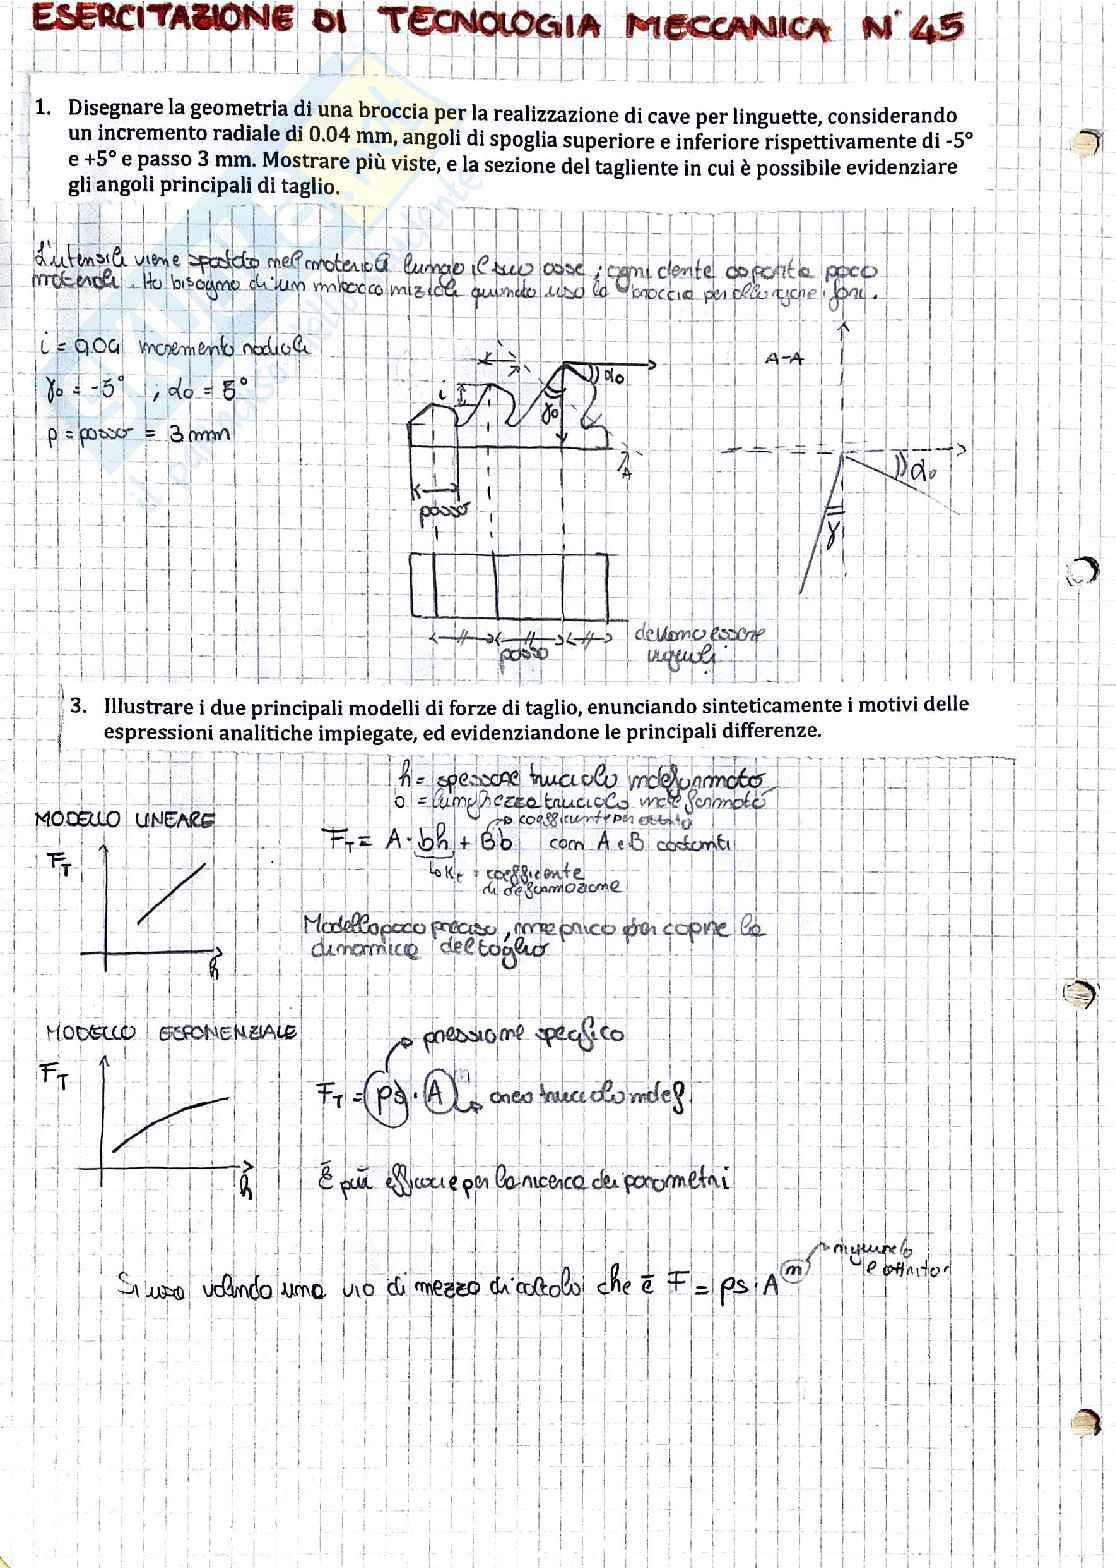 ESERCITAZIONE DI TECNOLOGIA MECCANICA N° 45
1. Disegnare la geometria di una broccia per la realizzazione di cave per linguette, considerando
un incremento radiale di 0.04 mm, angoli di spoglia superiore e inferiore rispettivamente di -5°
e +5° e passo 3 mm. Mostrare più viste, e la sezione del tagliente in cui è possibile evidenziare
gli angoli principali di taglio.
L'utensile viene spostato nel materiale lungo il suo asse; ogni dente asporta poco
materiale. Ho bisogno di un imbocco iniziale quando uso la broccia per allargare i fori.
i = 0,04 incremento radiale
γo = -5° ; αo = 5°
p = passo = 3 mm
i
γo
αo
A
passo
A-A
αo
γ
passo
devono essere
uguali
3. Illustrare i due principali modelli di forze di taglio, enunciando sinteticamente i motivi delle
espressioni analitiche impiegate, ed evidenziandone le principali differenze.
h = spessore truciolo indeformato
b = lunghezza truciolo indeformato
MODELLO LINEARE
coefficiente per attrito
FT = A · bh + Bb con A e B costanti
Kt = coefficiente
di deformazione
FT
h
Modello poco preciso, per capire la
dinamica del taglio
MODELLO ESPONENZIALE
pressione specifica
FT
FT = ps · A area truciolo indef.
h
È più efficace per la ricerca dei parametri
Si usa volendo una via di mezzo di calcolo che è F = ps · A m